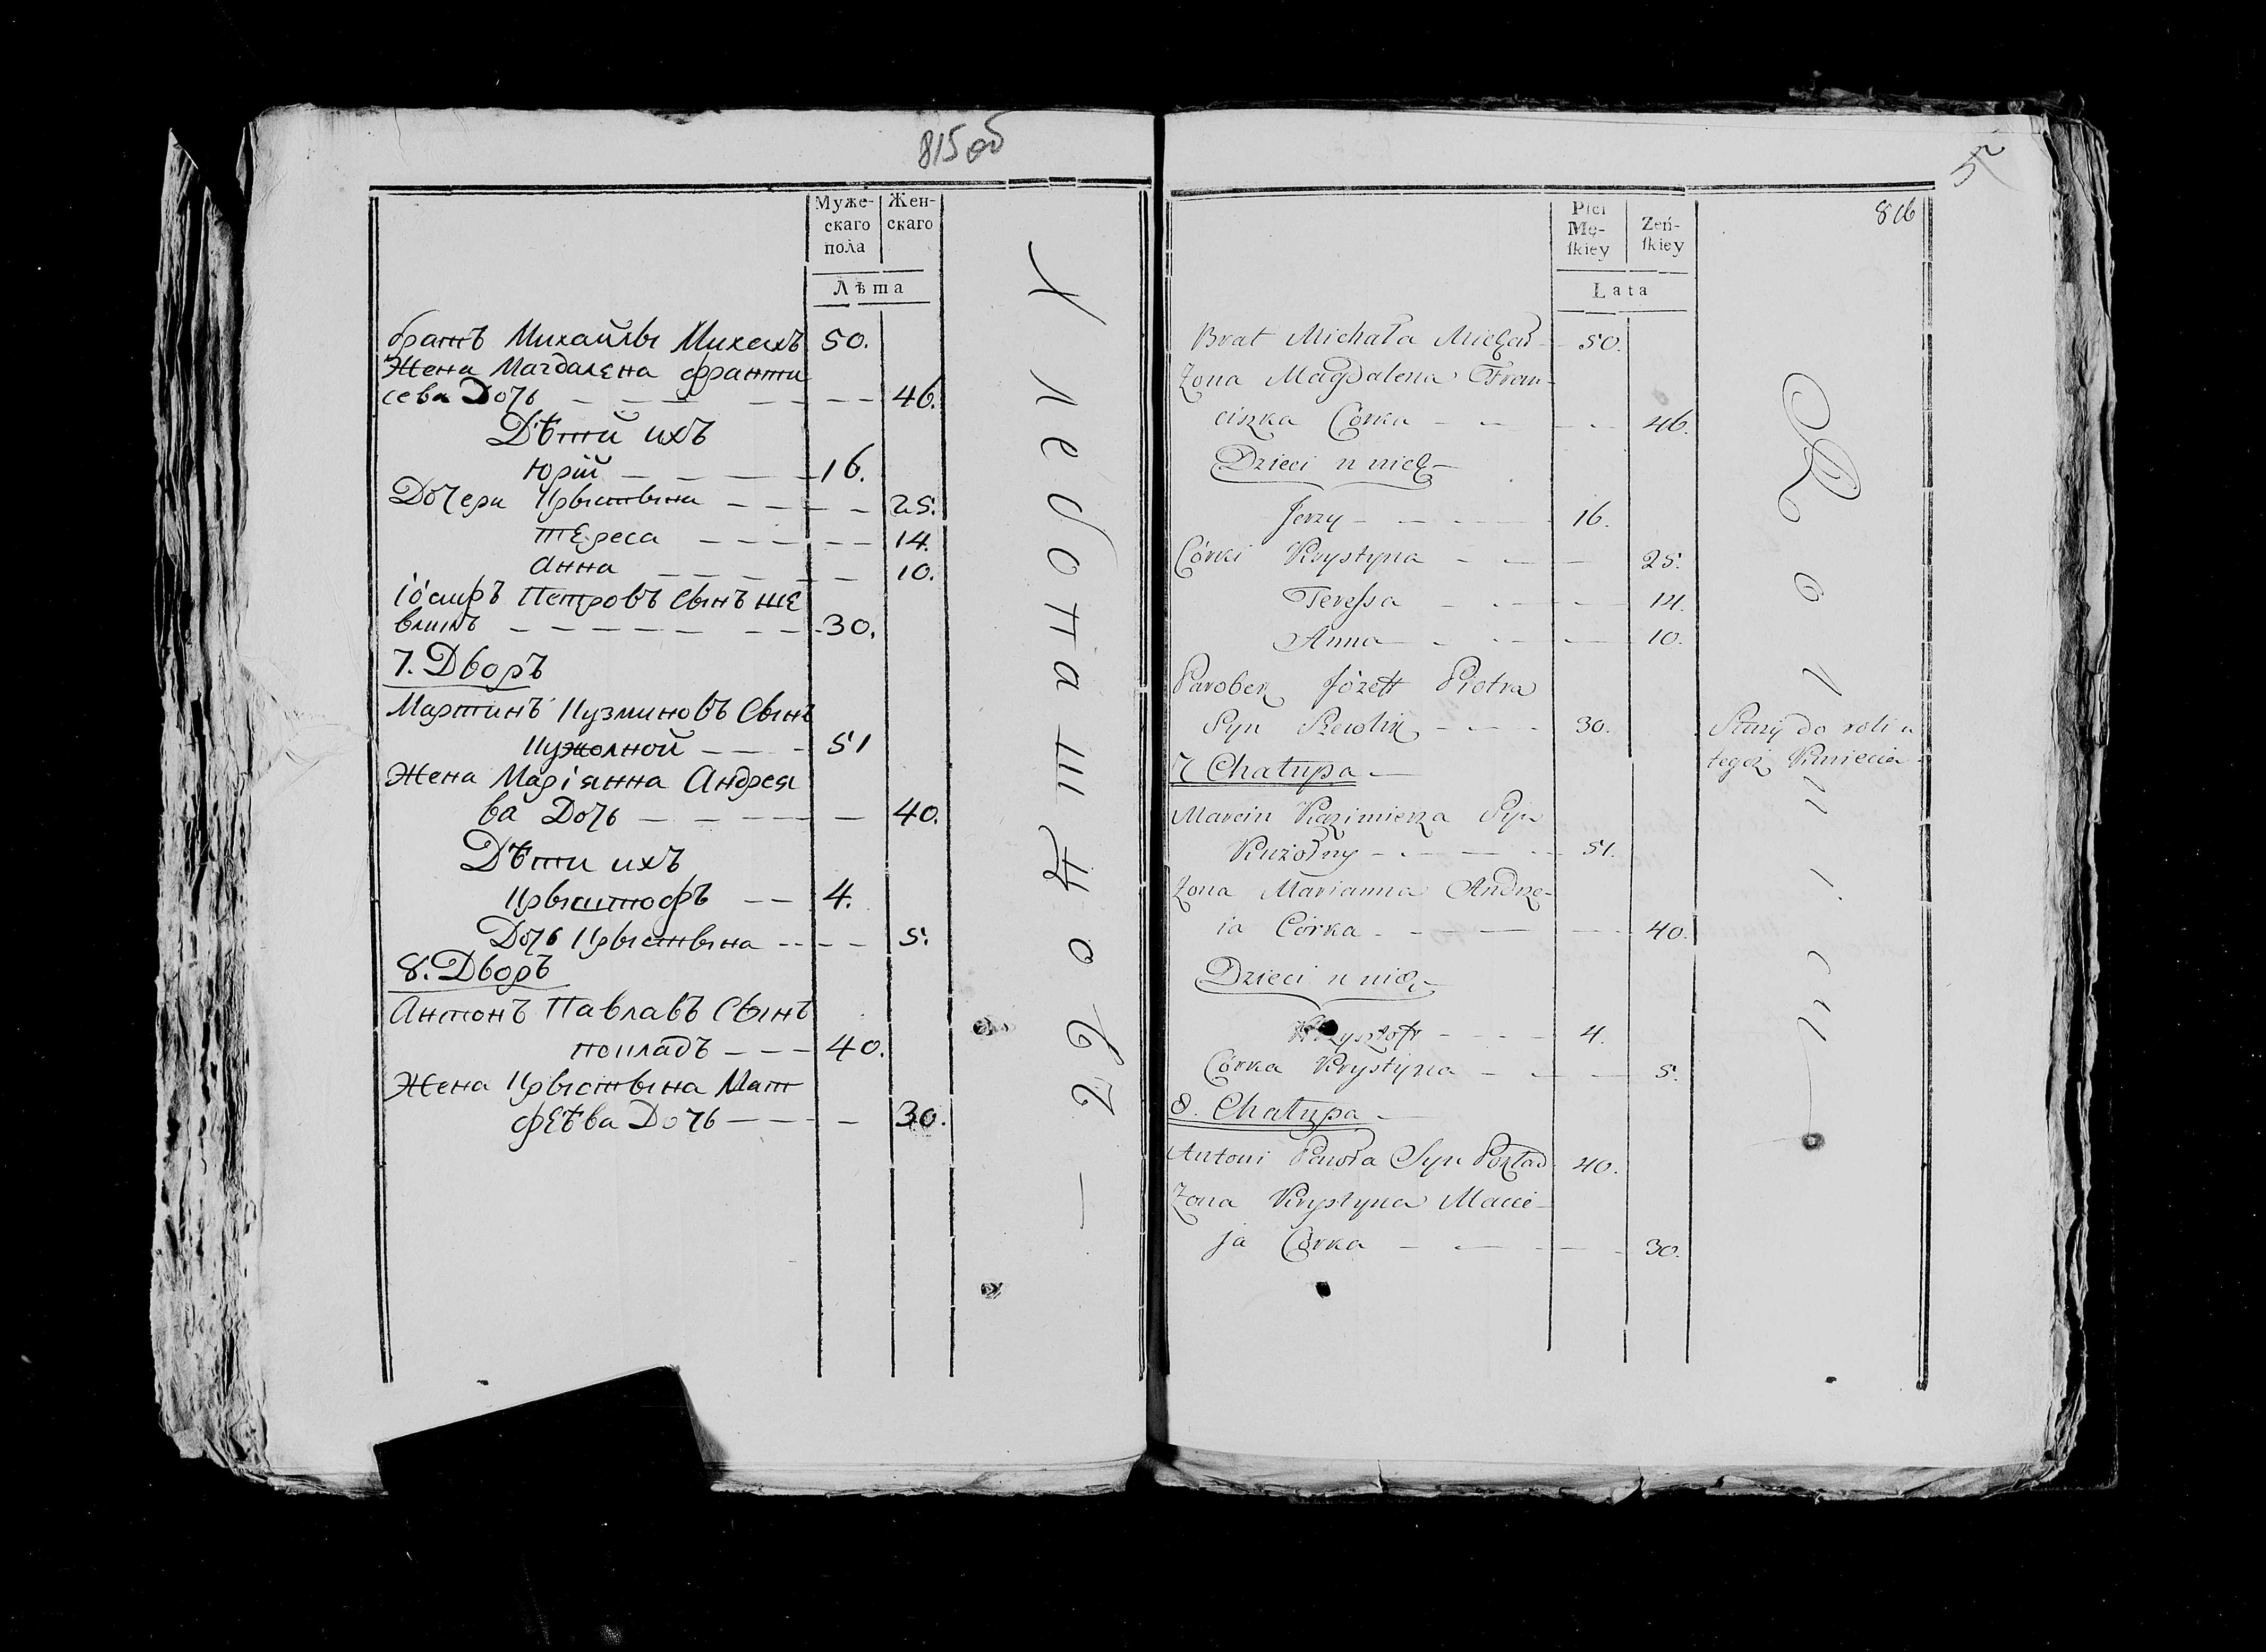 815 об
Муже-
скаго
пола
Жен-
скаго
Лѣта
братъ Михайлы Михалъ 50.
Жена Магдалена франти
сева Дочь — — — — — — 46.
Дѣтй ихъ
Юрiй — — — — 16.
Дочери Крыстына — — — — 25.
тереса — — — — — 14.
Анна — — — — — 10.
Iосифъ Петровъ Сынъ ше
вликъ — — — — — — — 30.
7. Дворъ
Мартинъ Кузминовъ Сынъ
Кужолной — — — 51
Жена Марiянна Андрея
ва Дочь — — — — — 40.
Дѣти ихъ
Крыштофъ — — 4.
Дочь Крыстына — — — 5.
8. Дворъ
Антонъ Павлавъ Сынъ
покладъ — — — 40.
Жена Крыстына Мат
феѣва Дочь — — — — 30.
Хлебопашцовъ —
52
816
Płci
Mę-
skiey
Żeń-
skiey
Lata
Brat Michała 50.
Zona Magdalena Fran-
ciszka Córka — — — — 46.
Dzieci u nich
Jerzy — — — — 16.
Córki Krystyna — — — 25.
Teressa — — — — 14.
Anna — — — — 10.
Parobek Józeff Piotra
Syn Szewlik — — — 30. Służy do roli u
tegoż Kmiecia
7 Chałupa —
Marcin Kazimierza Syn
Kużolny — — — — 51.
Zona Marianna Andrze-
ia Córka — — — — — 40.
Dzieci u nich
Krzysztoff — — — 4.
Córka Krystyna — — — 5.
8. Chałupa —
Antoni Pawła Syn Pokład 40.
Zona Krystyna Macie-
ja Córka — — — — 30.
Rolnicy